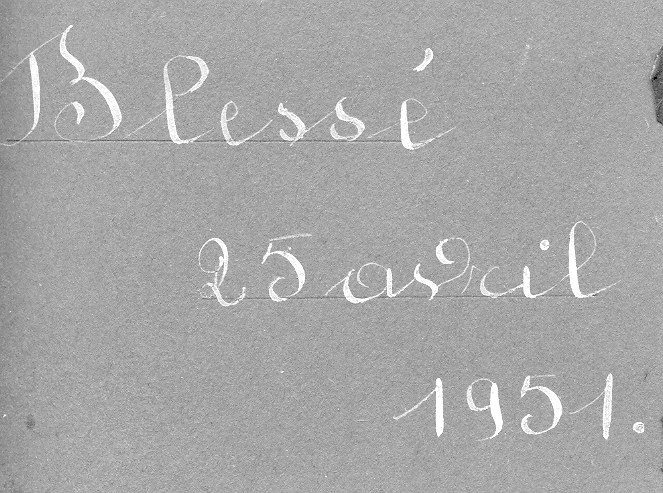 Blessé
25 avril
1951.